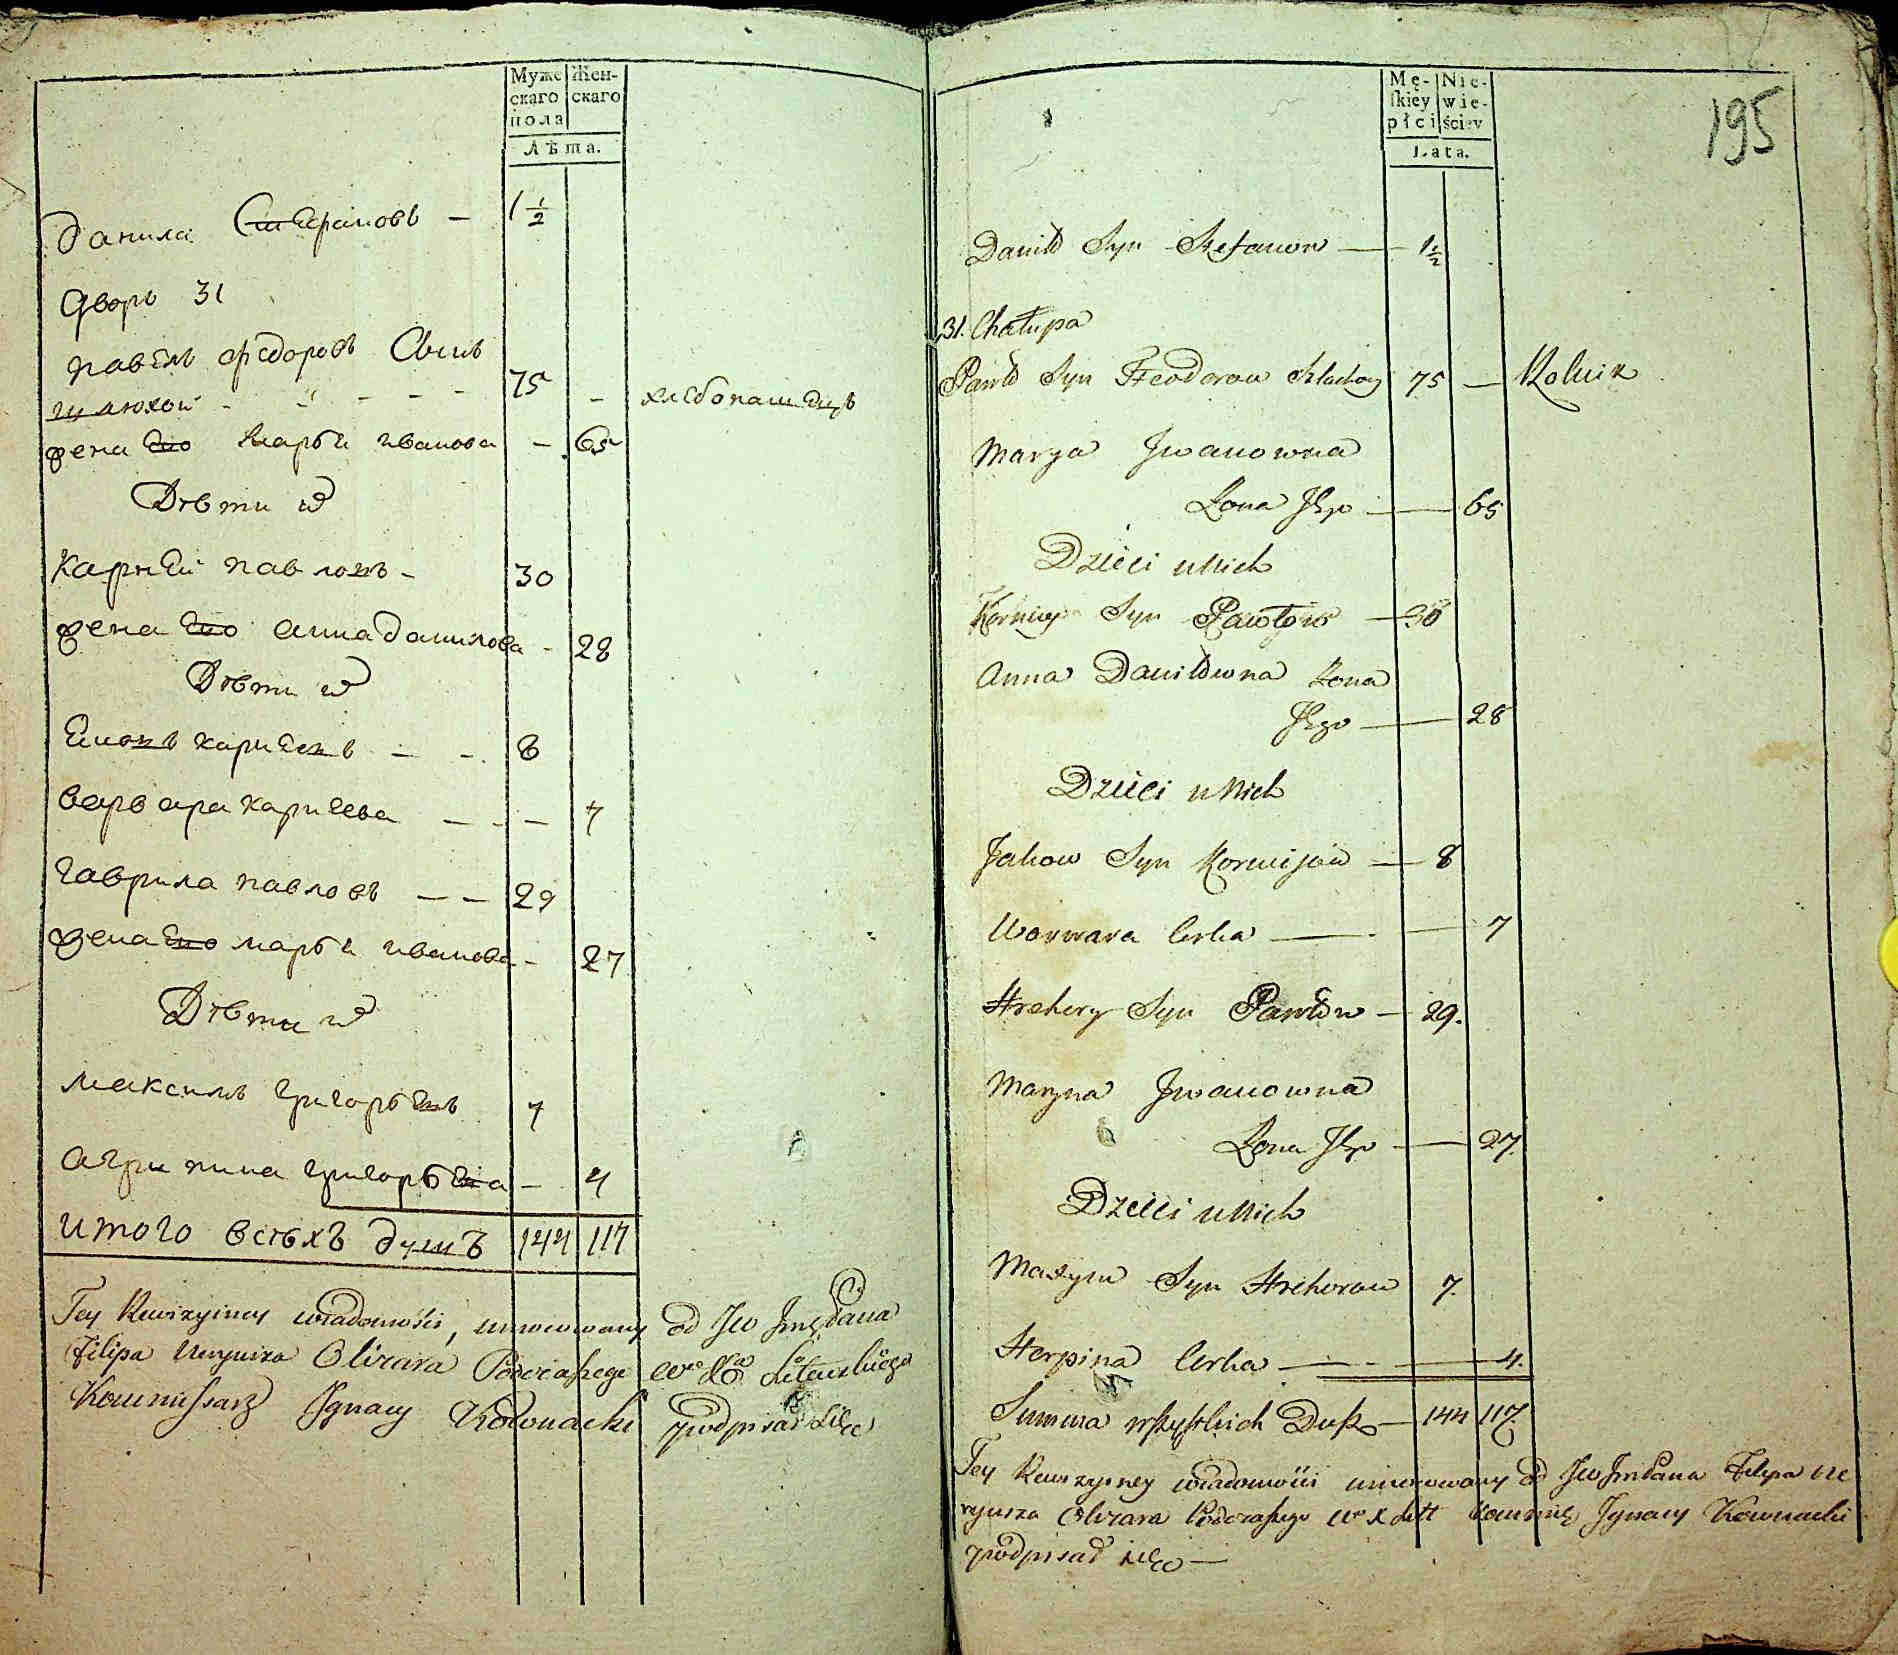 Муже
скаго
пола
Жен-
скаго
Лѣта.
Данила Стефановъ — 1 1/2
Дворъ 31
Павелъ Федоровъ Сынъ
75 — хлебопашецъ
жена Ево Марья Иванова — 65
Дѣти
Карней Павловъ - 30
жена Ево Анна Данилова - 28
Дѣти
карнеевъ — - 8
Варвара Карнеева — - — 7
Гаврила Павловъ — — 29
жена Ево Марья Иванова - 27
Дѣти
Максимъ Григорьевъ 7
Агрипина Григорьева — 4
Итого всѣхъ душъ 144 117
Tey Rewizyiney wiadomości, umocowany od Jw Jmć Pana
Filipa Neryusza Olizara Podczaszego Wo Xa Litewskiego
Kommissarz Ignacy podpisał się
Mę-
skiey
płci
Nie-
wie-
ściey
Lata.
195
Daniło Syn Stefanow — 1 1/2
31. Chałupa
Pawło Syn Feodorow 75 — Rolnik
Marya Jwanowna
Żona Jego — 65
Dzieci u Nich
Korniey Syn Pawłow — 30
Anna Daniłowna Żona
Jego — 28
Dzieci u Nich
Jakow Syn Korniejow — 8
Warwara Córka — 7
Hrehory Syn Pawłow — 29.
Maryna Jwanowna
Żona Jego — 27.
Dzieci u Nich
Maxym Syn Hrehorow 7.
Herpina Córka — 4.
Summa wszystkich Dusz — 144 117.
Tey Rewizyiney wiadomości umocowany od Jw Jmć Pana Filipa Ne
ryusza Olizara Podczaszego Wo X Litt Ignacy
podpisał się —